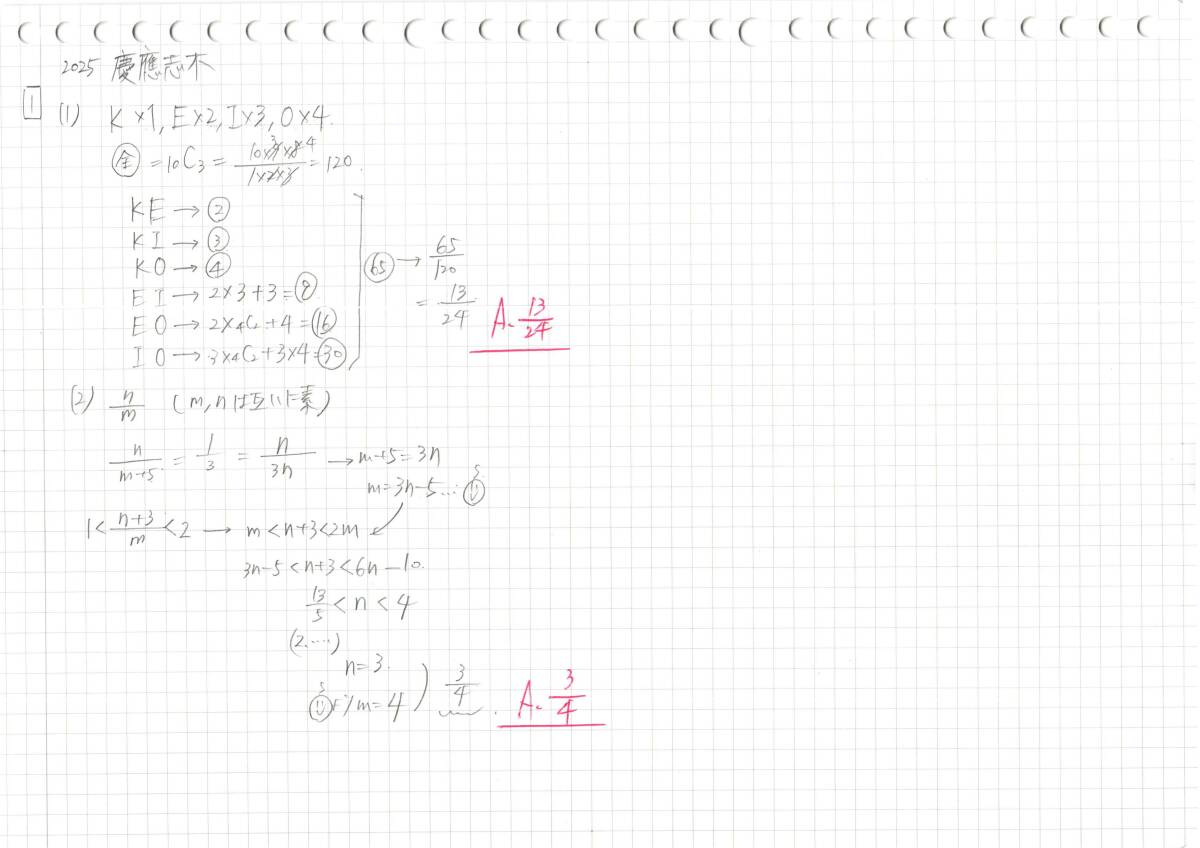 2025 慶應志木
1 (1) K×1, E×2, I×3, O×4.
全 = 10C3 = 10×9×8 / 1×2×3 = 120.
KE → 2
KI → 3
KO → 4
EI → 2×3+3=
EO → 2×4C2+4=16
IO → 3×4C2+3×4=30
65 → 65/120
= 13/24 A. 13/24
(2) n/m (m, nは互いに素)
n/m+5 = 1/3 = n/3n → m+5=3n
m=3n-5…
1< n+3/m <2 → m<n+3<2m
3n-5<n+3<6n-10.
13/5 < n < 4
(2.…)
n=3.
より m=4 ) 3/4 A. 3/4